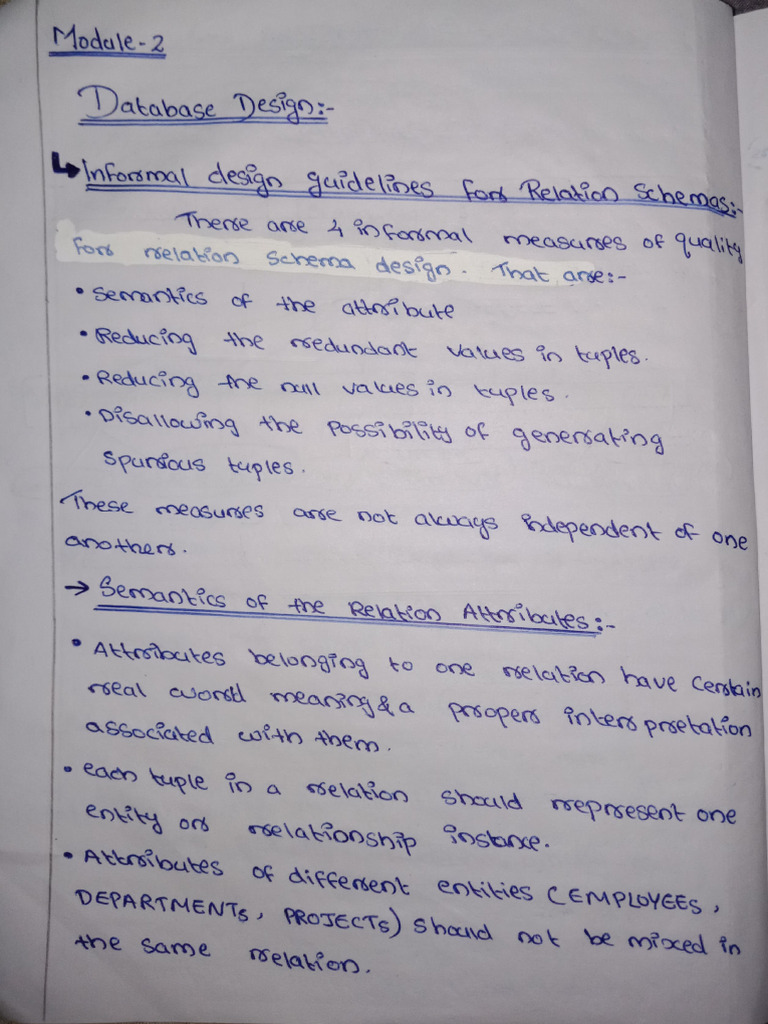 Module-2
Database Design:-
↳ Informal design guidelines for Relation Schemas:-
There are 4 informal measures of quality
for relation schema design. That are:-
• Semantics of the attribute
• Reducing the redundant values in tuples.
• Reducing the null values in tuples.
• Disallowing the possibility of generating
spurious tuples.
These measures are not always independent of one
another.
→ Semantics of the Relation Attributes:-
• Attributes belonging to one relation have certain
real world meaning & a proper interpretation
associated with them.
• each tuple in a relation should represent one
entity or relationship instance.
• Attributes of different entities (EMPLOYEES,
DEPARTMENTs, PROJECTs) should not be mixed in
the same relation.